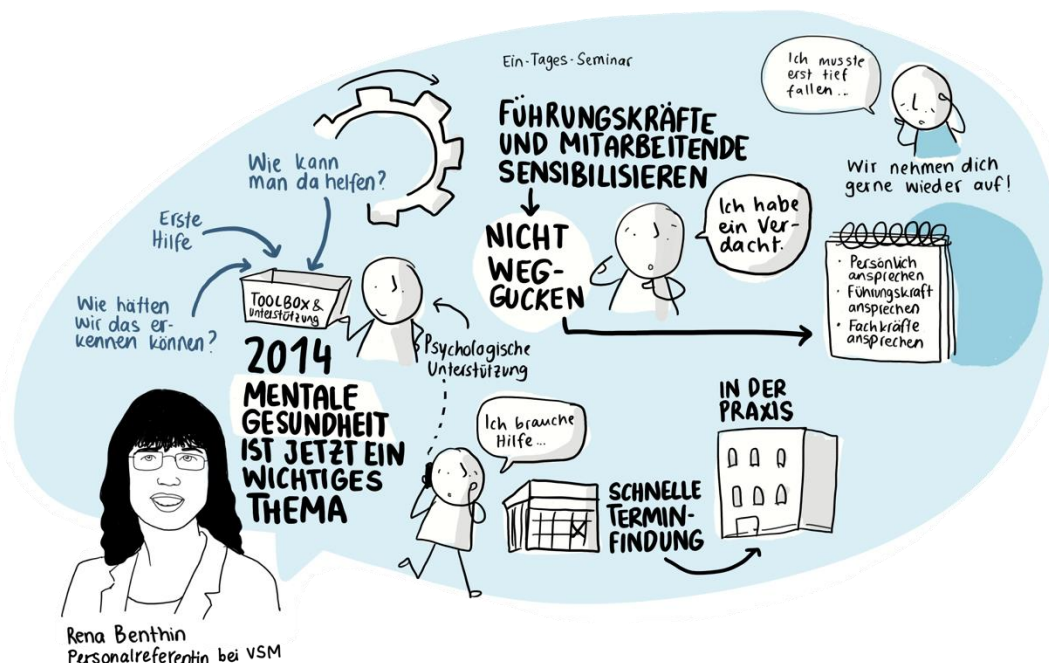 Ein-Tages-Seminar
FÜHRUNGSKRÄFTE
UND MITARBEITENDE
SENSIBILISIEREN
NICHT
WEG-
GUCKEN
Ich habe
ein Ver-
dacht.
Ich musste
erst tief
fallen...
Wir nehmen dich
gerne wieder auf!
· Persönlich
ansprechen
· Führungskraft
ansprechen
· Fachkräfte
ansprechen
Wie kann
man da helfen?
Erste
Hilfe
Wie hätten
wir das er-
kennen können?
TOOLBOX &
Unterstützung
2014
MENTALE
GESUNDHEIT
IST JETZT EIN
WICHTIGES
THEMA
Psychologische
Unterstützung
Ich brauche
Hilfe...
SCHNELLE
TERMIN-
FINDUNG
IN DER
PRAXIS
Rena Benthin
Personalreferentin bei VSM